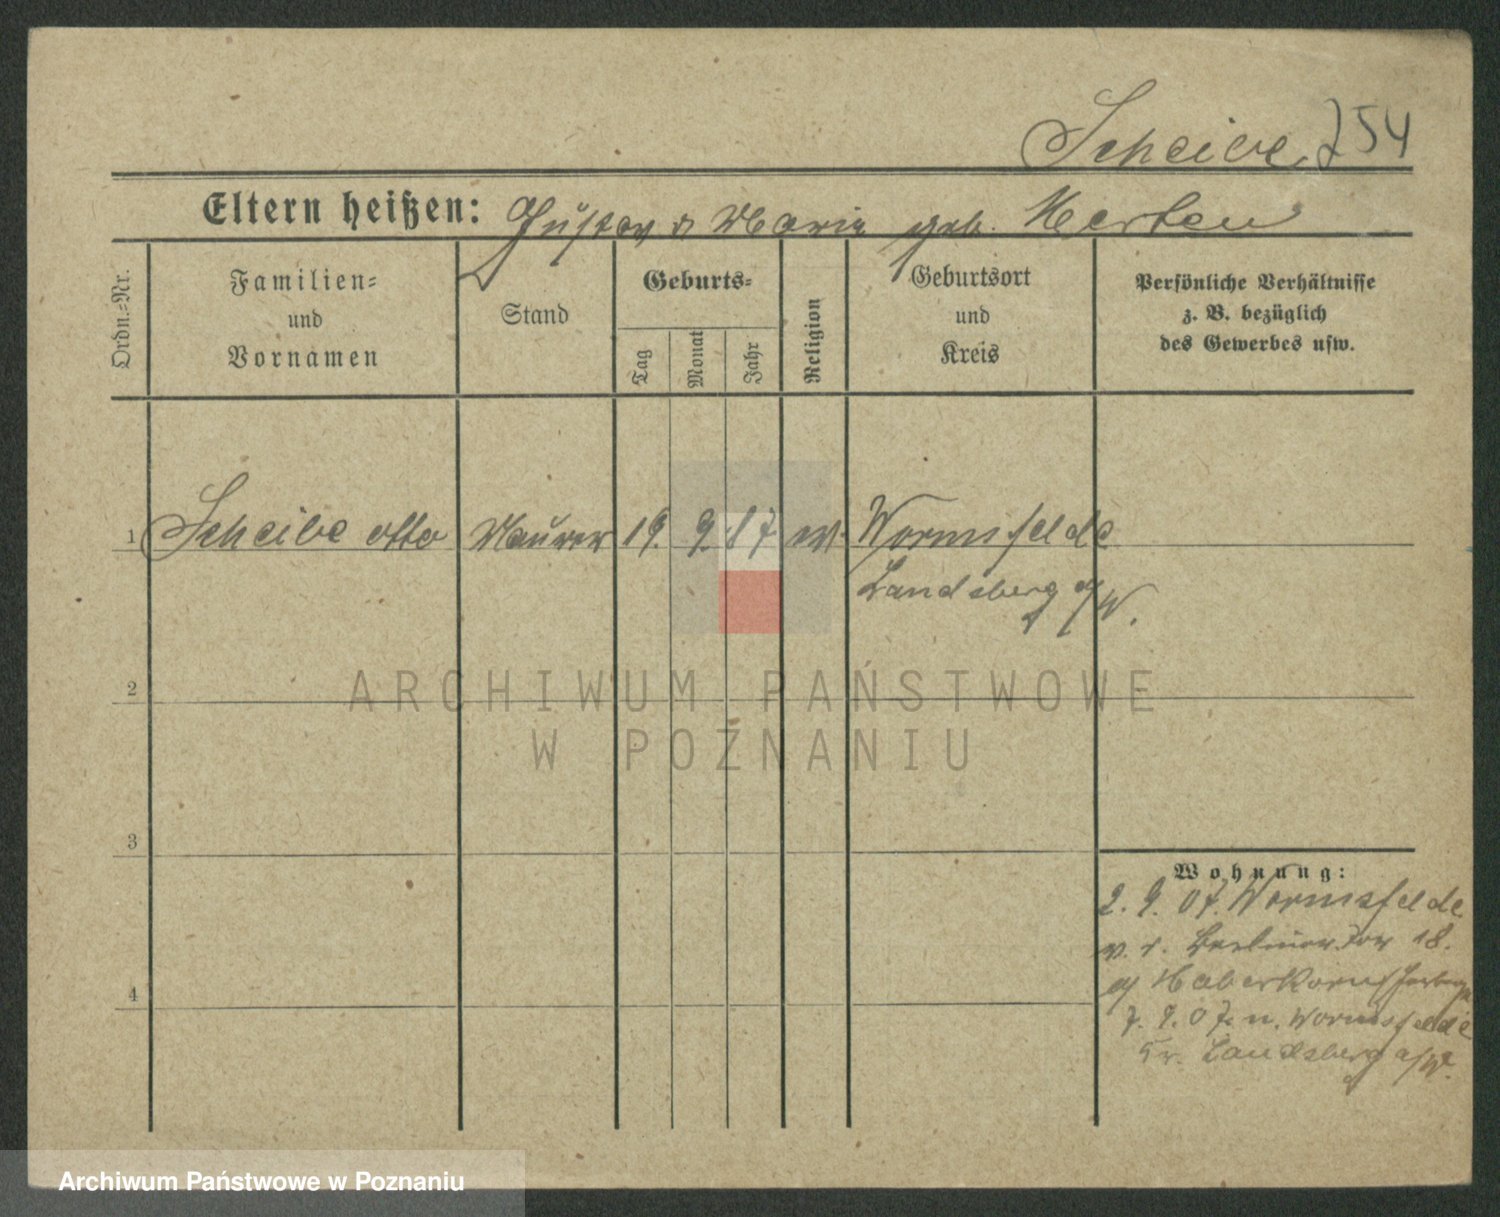 Scheibe 754
Eltern heißen: Gustav u Maria geb. Merten
Ordn.-Nr.
Familien-
und
Vornamen
Stand
Geburts-
Tag
Monat
Jahr
Religion
Geburtsort
und
Kreis
Persönliche Verhältnisse
z. B. bezüglich
des Gewerbes usw.
1 Scheibe Otto Maurer 19. 9. 87 ev. Wormsfelde
Landsberg a/W.
2
3
4
Wohnung:
2. 9. 07. Wormsfelde
v. r. Berliner Tor 18.
b/ Haberkorn
7. 9. 07. n. Wormsfelde
Kr. Landsberg a/W.
ARCHIWUM PAŃSTWOWE
W POZNANIU
Archiwum Państwowe w Poznaniu